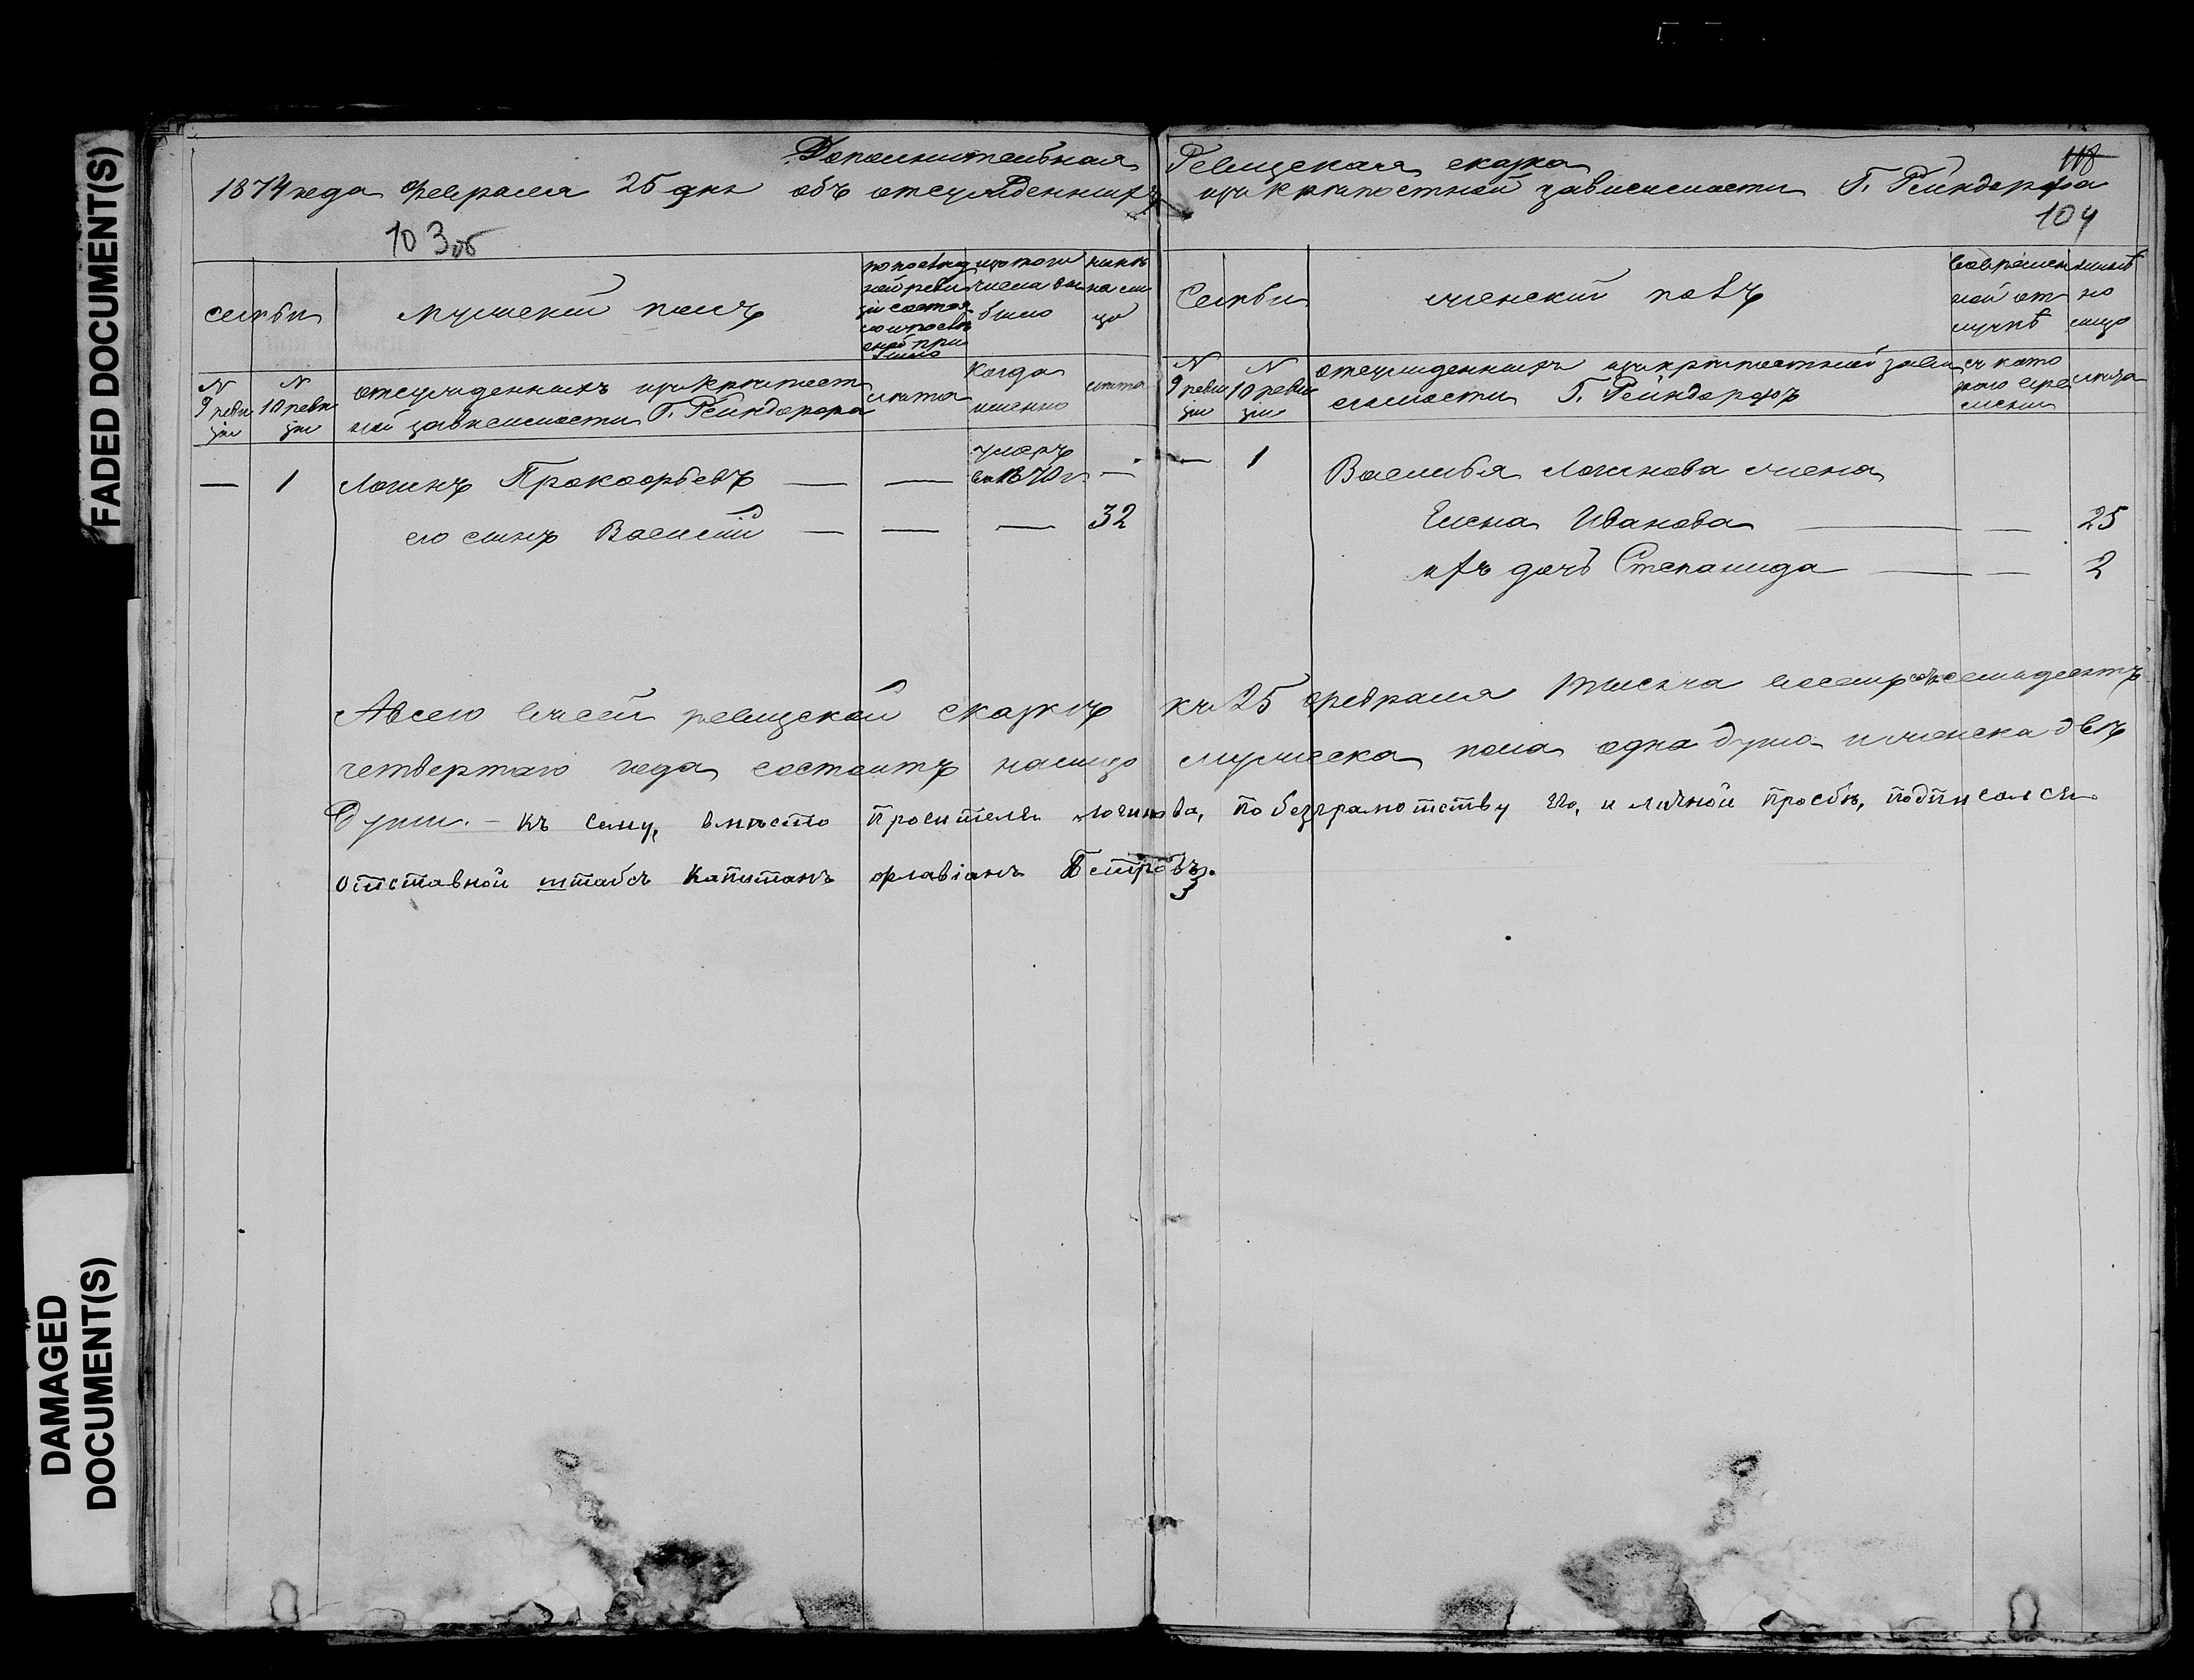 FADED DOCUMENT(S)
DAMAGED DOCUMENT(S)
Дополнительная Ревизская сказка
118
1874 года февраля 25 дня объ отсужденныхъ изъ крѣпостной зависимости Г. Рейндорфа
103об
104
семьи
мужеский полъ
по послед
ней реви
зіи состоя
ло и послѣ
оной при
было
изъ того
числа вы
было
нынѣ
на ли
цо
N
9 реви
зіи
N
10 реви
зіи
отсужденныхъ изъ крѣпост
ной зависимости Г. Рейндорфа
лѣта
Когда
именно
лѣта
— 1 Логинъ Прокофьевъ — — умеръ
въ 1870 г. —
его сынъ Василій — — — 32
Семьи
женский полъ
Во времен
ной от
лучкѣ
нынѣ
на
лицо
N
9 реви
зіи
N
10 реви
зіи
отсужденныхъ изъ крѣпостной зави
симости Г. Рейндорфъ
съ кото
раго вре
мени
лѣта
— 1 Василья Логинова жена
Елена Иванова — — 25
ихъ дочь Степанида — — 2
А всего въ сей ревизской сказкѣ къ 25 февраля тысяча восемьсотъ семьдесятъ
четвертаго года состоитъ налицо мужеска пола одна душа и женска двѣ
Души. – Къ сему, вмѣсто просителя Логинова, по безграмотству его, и личной просьбѣ, подписался
отставной штабсъ Капитанъ Флавіанъ Петровъ.
3